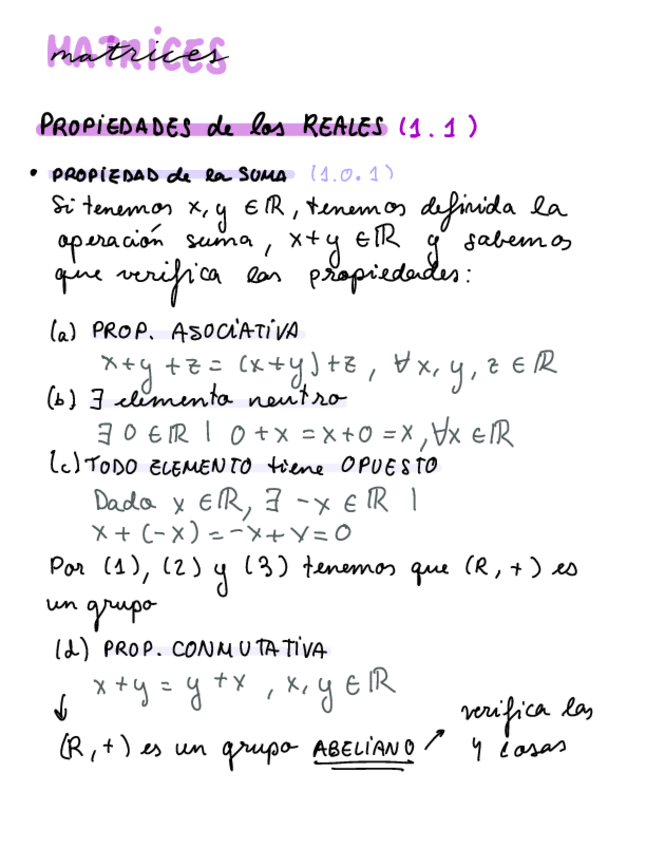 MATRICES
matrices
PROPIEDADES de los REALES (1.1)
• PROPIEDAD de la SUMA (1.0.1)
Si tenemos x, y ∈ ℝ, tenemos definida la
operación suma, x+y ∈ ℝ y sabemos
que verifica las propiedades:
(a) PROP. ASOCIATIVA
x+y+z = (x+y)+z, ∀ x, y, z ∈ ℝ
(b) ∃ elemento neutro
∃ 0 ∈ ℝ | 0+x = x+0 = x, ∀x ∈ ℝ
(c) TODO ELEMENTO tiene OPUESTO
Dado x ∈ ℝ, ∃ -x ∈ ℝ |
x + (-x) = -x + x = 0
Por (1), (2) y (3) tenemos que (R, +) es
un grupo
(d) PROP. CONMUTATIVA
x+y = y+x, x, y ∈ ℝ
↓
(R, +) es un grupo ABELIANO ↗ verifica las
4 cosas